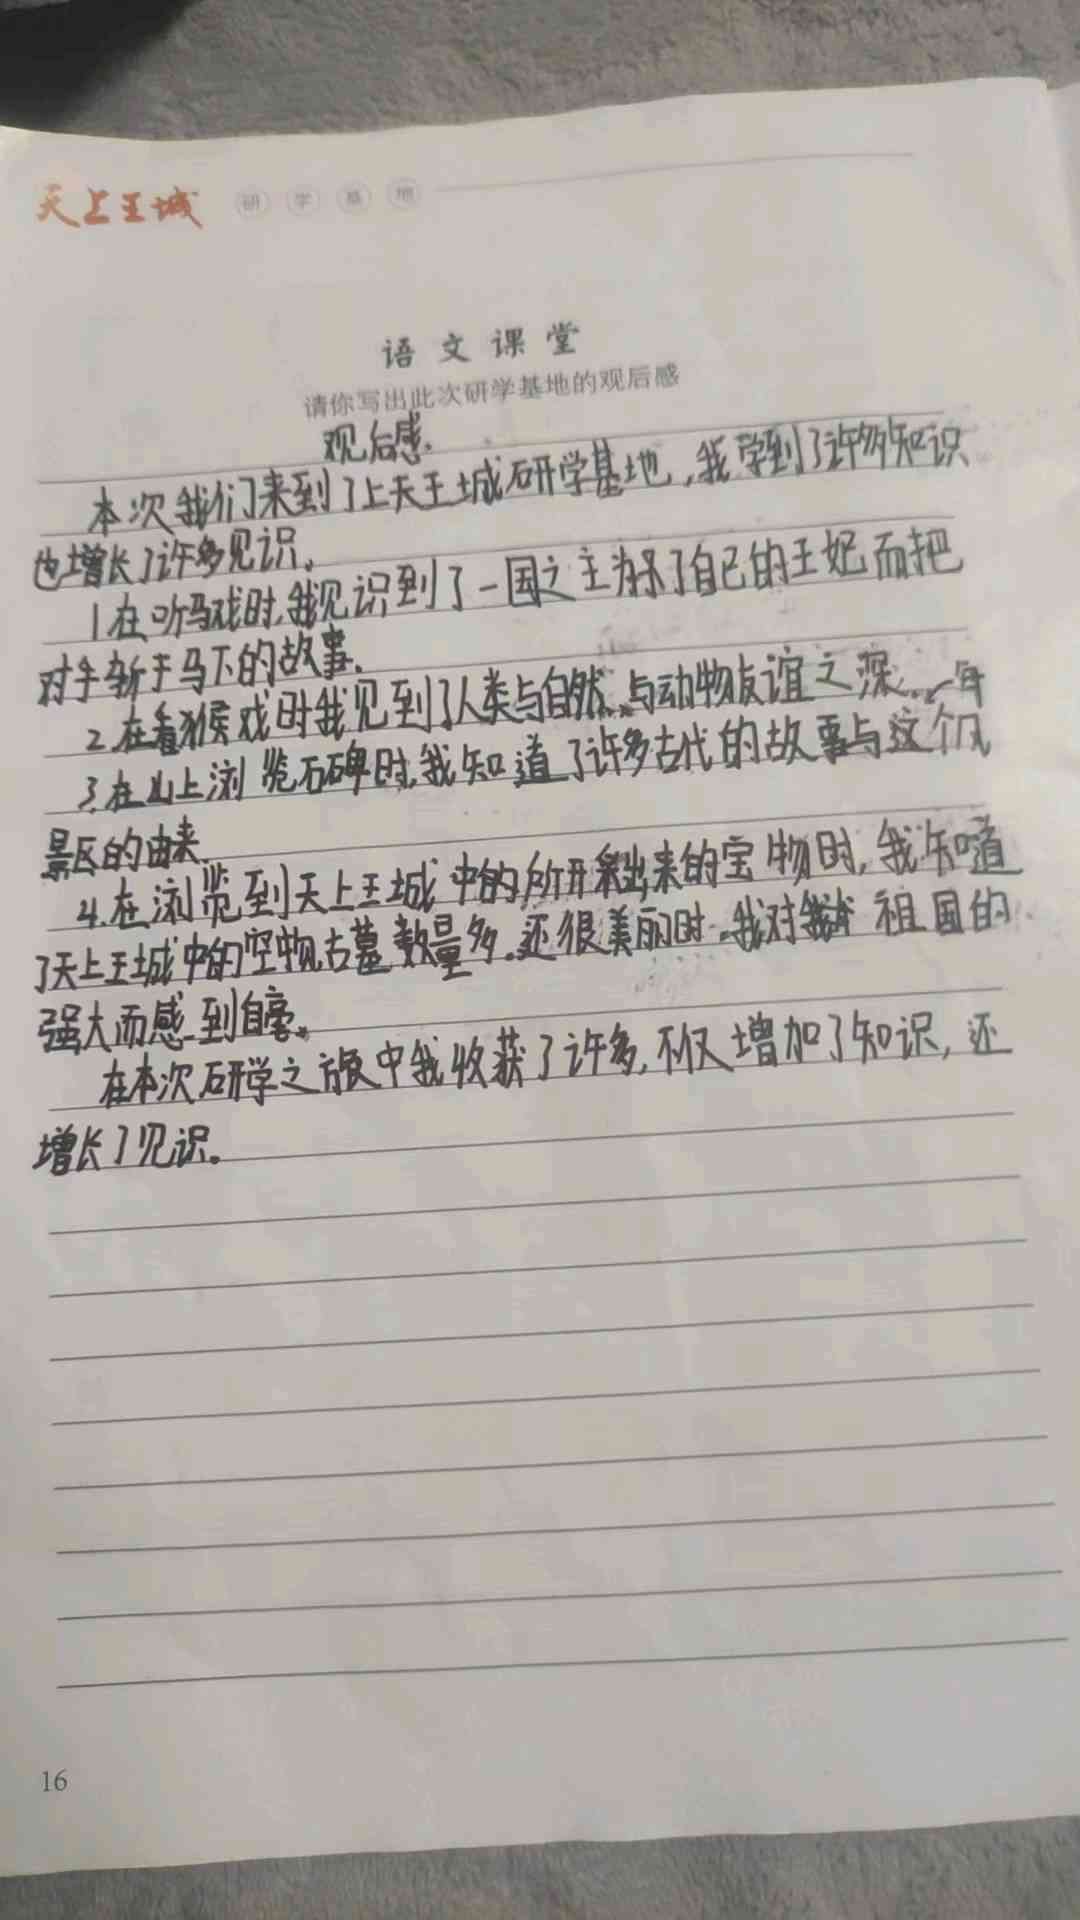 天上王城 研学基地
语文课堂
请你写出此次研学基地的观后感
观后感.
本次我们来到了上天王城研学基地,我学到了许多知识
也增长了许多见识。
1在听马戏时,我见识到了一国之主为了自己的王妃而把
对手斩于马下的故事.
2.在看猴戏时我见到了人类与自然.与动物友谊之深.
3.在山上浏览石碑时,我知道了许多古代的故事与这个风
景区的由来.
4.在浏览到天上王城中的所开采出来的宝物时,我知道
了天上王城中的宝物古墓数量多.还很美丽时.我对我祖国的
强大而感到自豪。
在本次研学之旅中我收获了许多,不仅增加了知识,还
增长了见识。
16